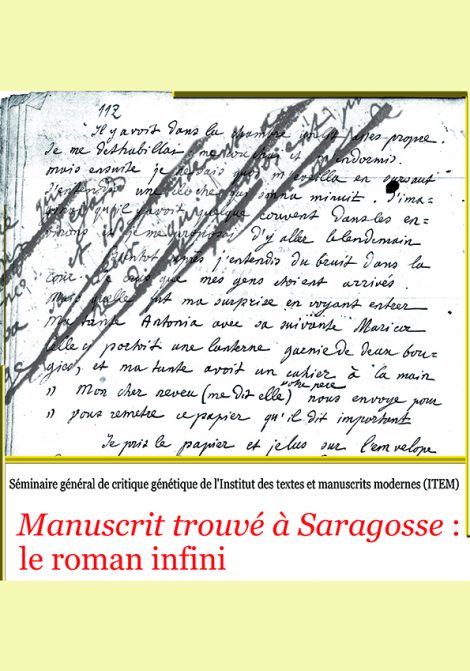 112
Il y avoit dans la chambre
Je me deshabillai me couchai et m'endormis.
mais ensuite je ne sais quoi m'eveilla en sursaut
une cloche qui sonna minuit. J'ima-
ginai qu'il y avoit quelque couvent dans les en-
virons et je me proposai d'y aller le lendemain
Bientot apres j'entendis du bruit dans la
cour. Je crus que mes gens etoient arrivés
Mais quelle fut ma surprise en voyant entrer
Ma tante Antonia avec sa suivante
elle ci portoit une lanterne garnie de deux bou-
gies, et ma tante avoit un cahier à la main
" Mon cher neveu (me dit elle) votre pere nous envoye pour
" vous remetre ce papier qu'il dit important
Je pris le papier et je lus sur l'envelope
Séminaire général de critique génétique de l'Institut des textes et manuscrits modernes (ITEM)
Manuscrit trouvé à Saragosse :
le roman infini